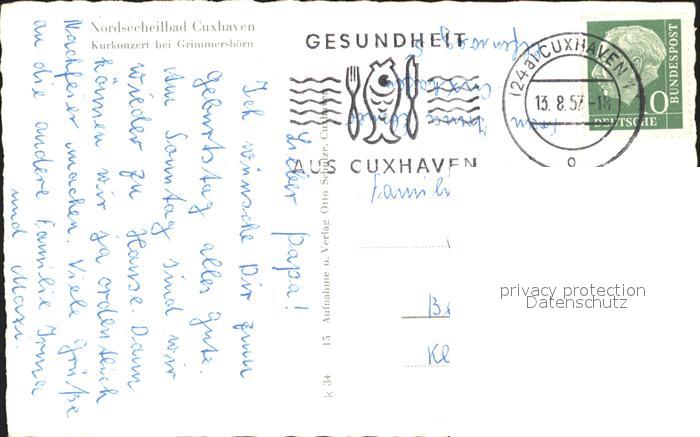 Nordseeheilbad Cuxhaven
Kurkonzert bei Grimmershörn
GESUNDHEIT
AUS CUXHAVEN
(24a) CUXHAVEN 1
13.8.57.-18
o
10
DEUTSCHE
BUNDESPOST
k 34 15 Aufnahme u. Verlag Otto Schulze, Cuxhaven
Lieber Papa!
Ich wünsche Dir zum
Geburtstag alles Gute.
Am Sonntag sind wir
wieder zu Hause. Dann
können wir ja ordentlich
Nachfeier machen. Viele Grüße
an die andere Familie Irma
und Marx.
Famili
Kl
privacy protection
Datenschutz